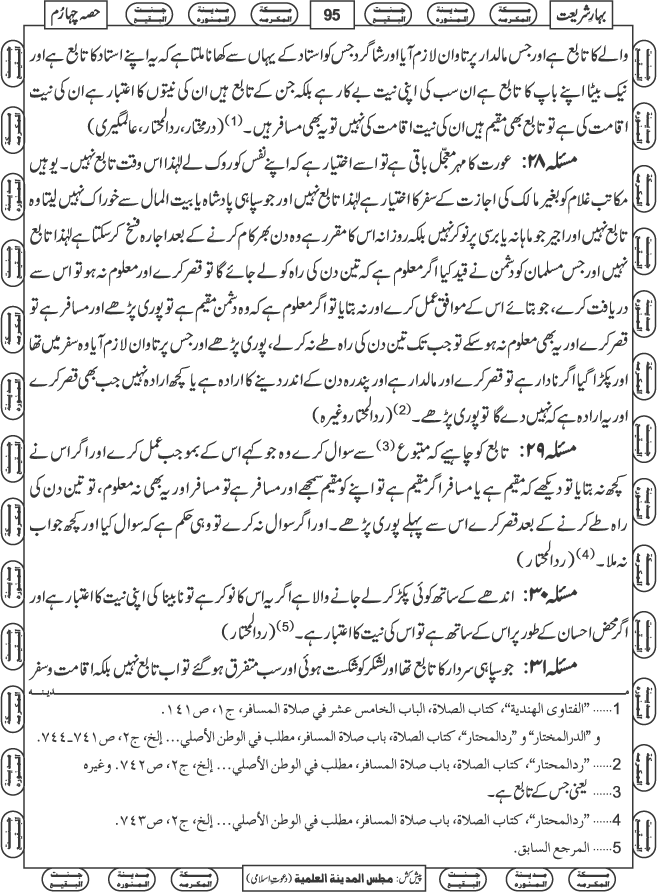 بہارِ شریعت
مكة المكرمه
جنت البقيع
95
مكة المكرمه
مدينة المنوره
جنت البقيع
حصہ چہارم
والے کا تابع ہے اور جس مالدار پر تاوان لازم آیا اور شاگرد جس کو استاد کے یہاں سے کھانا ملتا ہے کہ یہ اپنے استاد کا تابع ہے اور
نیک بیٹا اپنے باپ کا تابع ہے ان سب کی اپنی نیت بے کار ہے بلکہ جن کے تابع ہیں ان کی نیتوں کا اعتبار ہے ان کی نیت
اقامت کی ہے تو تابع بھی مقیم ہیں ان کی نیت اقامت کی نہیں تو یہ بھی مسافر ہیں۔(1) (درمختار، ردالمحتار، عالمگیری)
مسئلہ ۲۸: عورت کا مہر معجّل باقی ہے تو اسے اختیار ہے کہ اپنے نفس کو روک لے لہٰذا اس وقت تابع نہیں۔ یوہیں
مکاتب غلام کو بغیر مالک کی اجازت کے سفر کا اختیار ہے لہٰذا تابع نہیں اور جو سپاہی پادشاہ یا بیت المال سے خوراک نہیں لیتا وہ
تابع نہیں اور اجیر جو ماہانہ یا برسی پر نوکر نہیں بلکہ روزانہ اس کا مقرر ہے وہ دن بھر کام کرنے کے بعد اجارہ فسخ کر سکتا ہے لہٰذا تابع
نہیں اور جس مسلمان کو دشمن نے قید کیا اگر معلوم ہے کہ تین دن کی راہ کو لے جائے گا تو قصر کرے اور معلوم نہ ہو تو اس سے
دریافت کرے، جو بتائے اس کے موافق عمل کرے اور نہ بتایا تو اگر معلوم ہے کہ وہ دشمن مقیم ہے تو پوری پڑھے اور مسافر ہے تو
قصر کرے اور یہ بھی معلوم نہ ہو سکے تو جب تک تین دن کی راہ طے نہ کر لے، پوری پڑھے اور جس پر تاوان لازم آیا وہ سفر میں تھا
اور پکڑا گیا اگر نادار ہے تو قصر کرے اور مالدار ہے اور پندرہ دن کے اندر دینے کا ارادہ ہے یا کچھ ارادہ نہیں جب بھی قصر کرے
اور یہ ارادہ ہے کہ نہیں دے گا تو پوری پڑھے۔(2) (ردالمحتار وغیرہ)
مسئلہ ۲۹: تابع کو چاہیے کہ متبوع(3) سے سوال کرے وہ جو کہے اس کے بموجب عمل کرے اور اگر اس نے
کچھ نہ بتایا تو دیکھے کہ مقیم ہے یا مسافر اگر مقیم ہے تو اپنے کو مقیم سمجھے اور مسافر ہے تو مسافر اور یہ بھی نہ معلوم، تو تین دن کی
راہ طے کرنے کے بعد قصر کرے اس سے پہلے پوری پڑھے۔ اور اگر سوال نہ کرے تو وہی حکم ہے کہ سوال کیا اور کچھ جواب
نہ ملا۔(4) (ردالمحتار)
مسئلہ ۳۰: اندھے کے ساتھ کوئی پکڑ کر لے جانے والا ہے اگر یہ اس کا نوکر ہے تو نابینا کی اپنی نیت کا اعتبار ہے اور
اگر محض احسان کے طور پر اس کے ساتھ ہے تو اس کی نیت کا اعتبار ہے۔(5) (ردالمحتار)
مسئلہ ۳۱: جو سپاہی سردار کا تابع تھا اور لشکر کو شکست ہوئی اور سب متفرق ہو گئے تو اب تابع نہیں بلکہ اقامت و سفر
مدینہ
1...... "الفتاوى الهندية"، كتاب الصلاة، الباب الخامس عشر في صلاة المسافر، ج١، ص١٤١.
و "الدرالمختار" و "ردالمحتار"، كتاب الصلاة، باب صلاة المسافر، مطلب في الوطن الأصلي... إلخ، ج٢، ص٧٤١ـ٧٤٤.
2...... "ردالمحتار"، كتاب الصلاة، باب صلاة المسافر، مطلب في الوطن الأصلي... إلخ، ج٢، ص٧٤٢. وغيره
3...... یعنی جس کے تابع ہے۔
4...... "ردالمحتار"، كتاب الصلاة، باب صلاة المسافر، مطلب في الوطن الأصلي... إلخ، ج٢، ص٧٤٣.
5...... المرجع السابق.
پیش کش: مجلس المدينة العلمية (دعوتِ اسلامی)